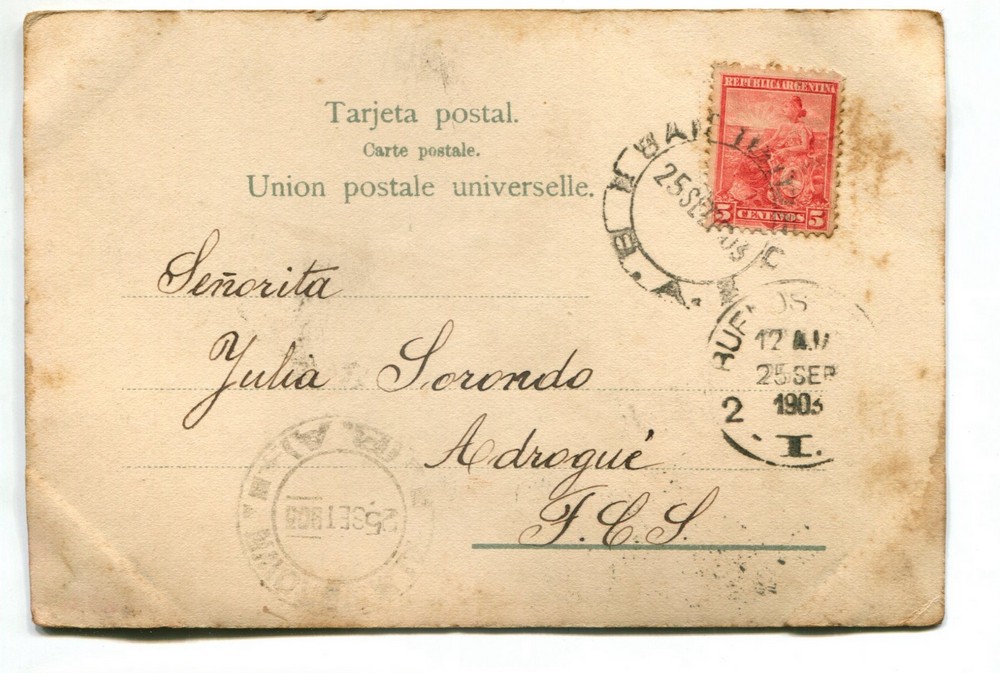 Tarjeta postal.
Carte postale.
Union postale universelle.
REPÚBLICA ARGENTINA
5 CENTAVOS 5
25 SET
Señorita
Julia Sorondo
Adrogué
F.C.S.
BUENOS
12 A.M
25 SEP
1903
2
I.
25 SET 903